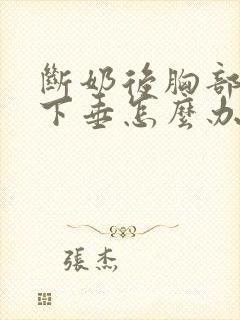 斷奶後胸部
下垂怎麼办
張杰